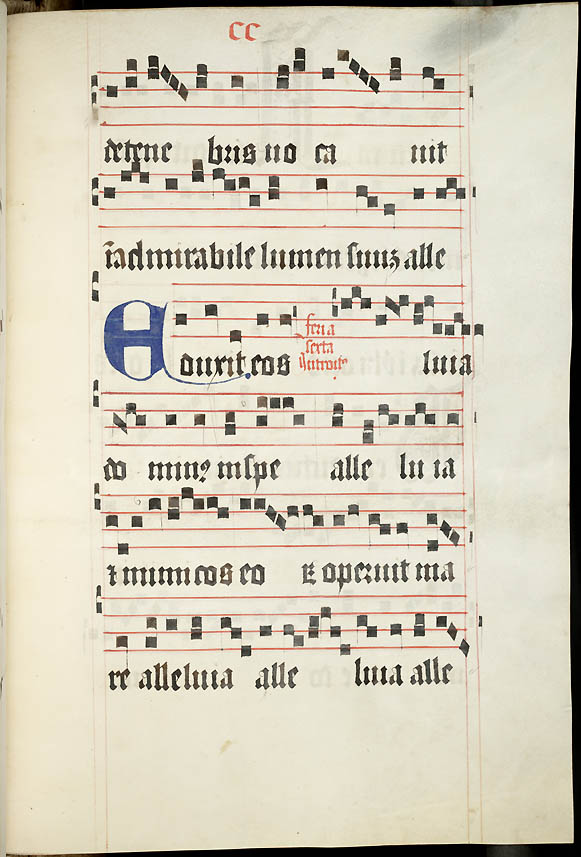 cc
de tene bris uo ca uit
ī admirabile lumen suuȝ alle
Eduxit eos luia
feria
sexta
Introitꝰ
do minꝰ in spe alle lu ia
⁊ inimicos eo ꝝ operuit ma
re alleluia alle luia alle